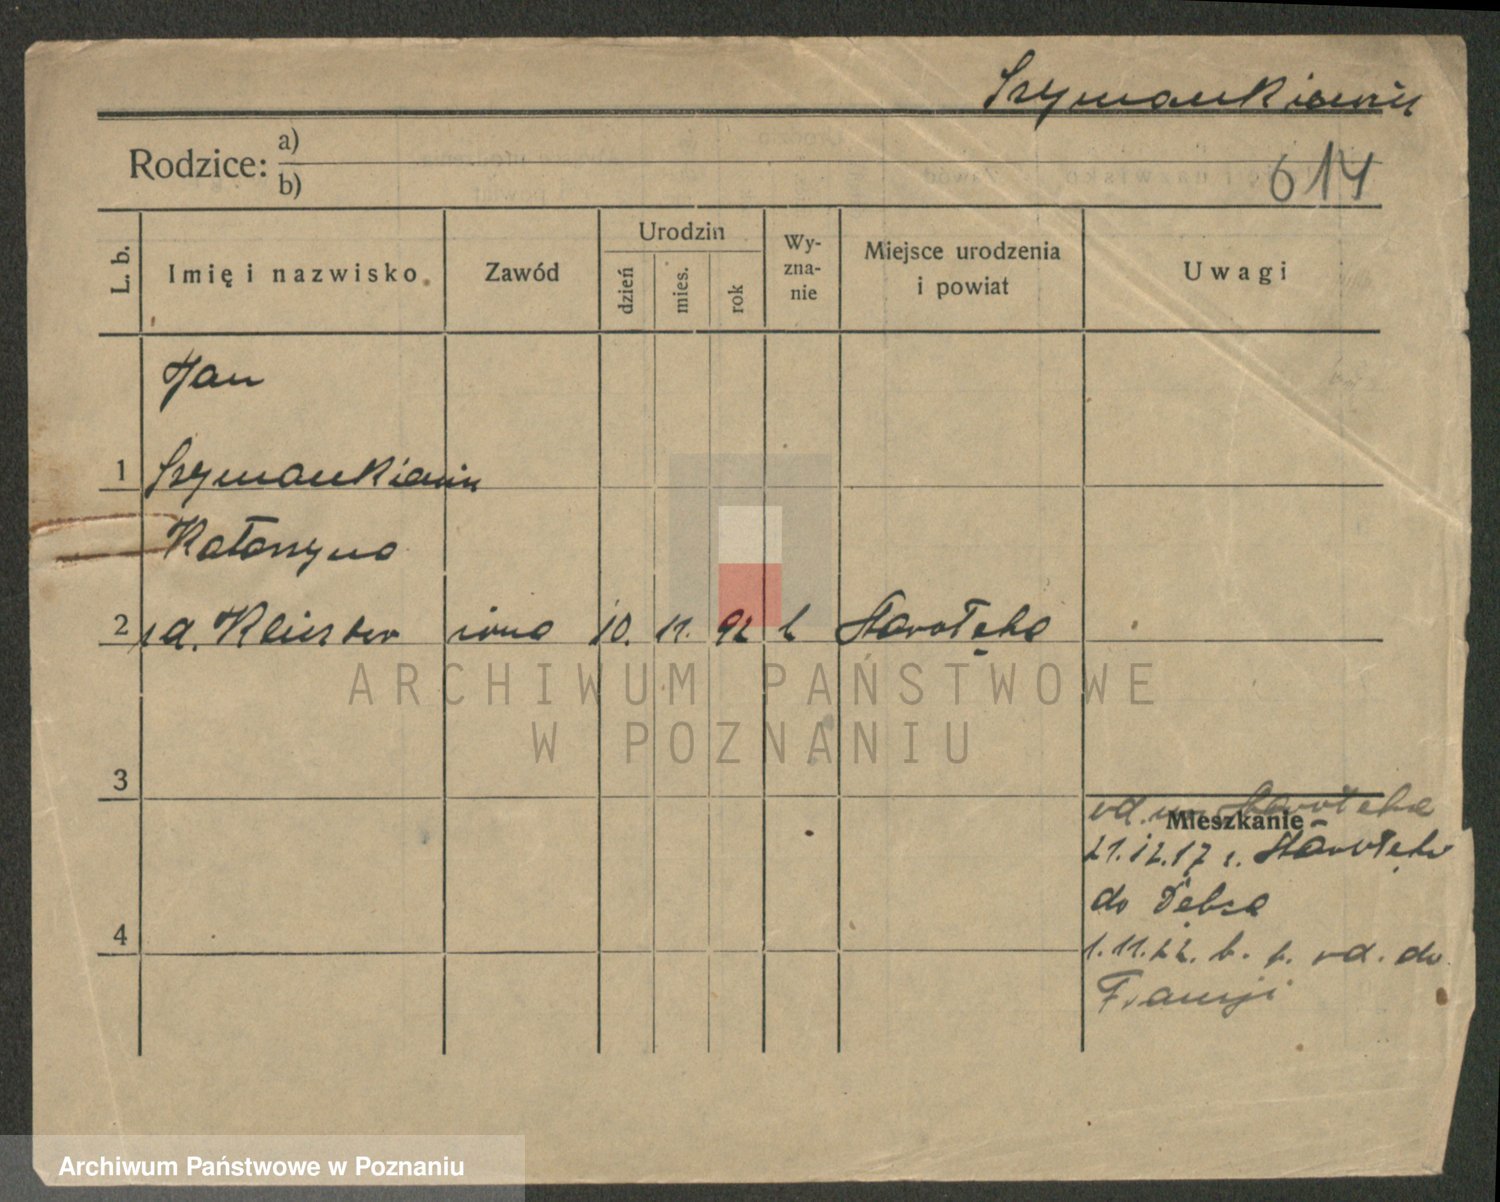 Szymankiewicz
Rodzice: a)
b)
614
L. b.
Imię i nazwisko
Zawód
Urodzin
dzień
mies.
rok
Wy-
zna-
nie
Miejsce urodzenia
i powiat
Uwagi
Jan
1 Szymankiewicz
Katarzyna
2 żona 10. 11. 92 k Starołęka
3
4
Mieszkanie
od ur. Starołęka
21.12.17 z Starołęki
do Dębca
1.11.22. od. do
Francji
ARCHIWUM PAŃSTWOWE
W POZNANIU
Archiwum Państwowe w Poznaniu